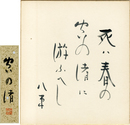 死は春の
空の渚に
遊ぶべし
八束
空の渚